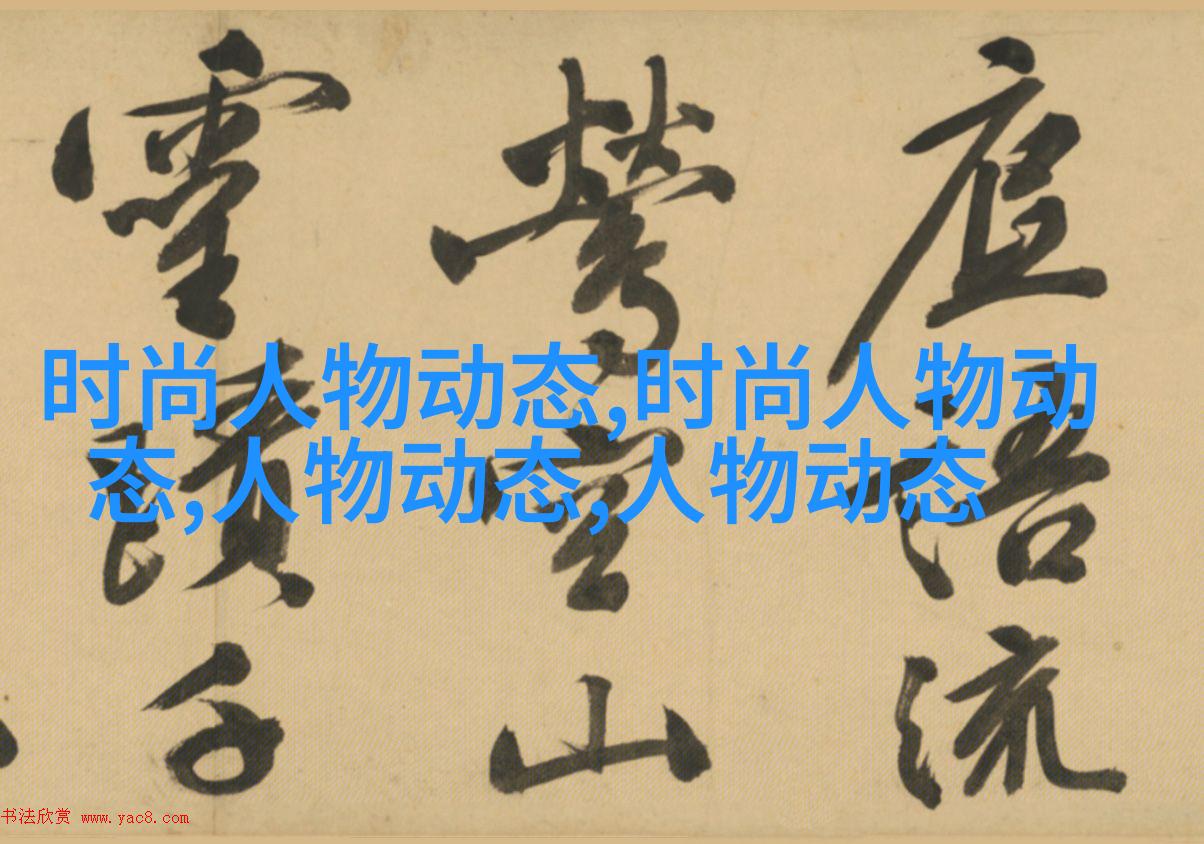 时尚人物动态,时尚人物动
态,人物动态,人物动态
語流
鶯空山
靈蹟千
书法欣赏 www.yac8.com